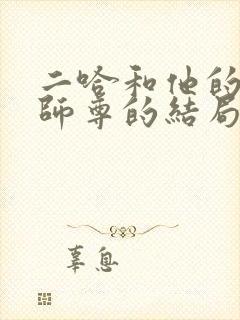 二哈和他的
師尊的結局
辜息